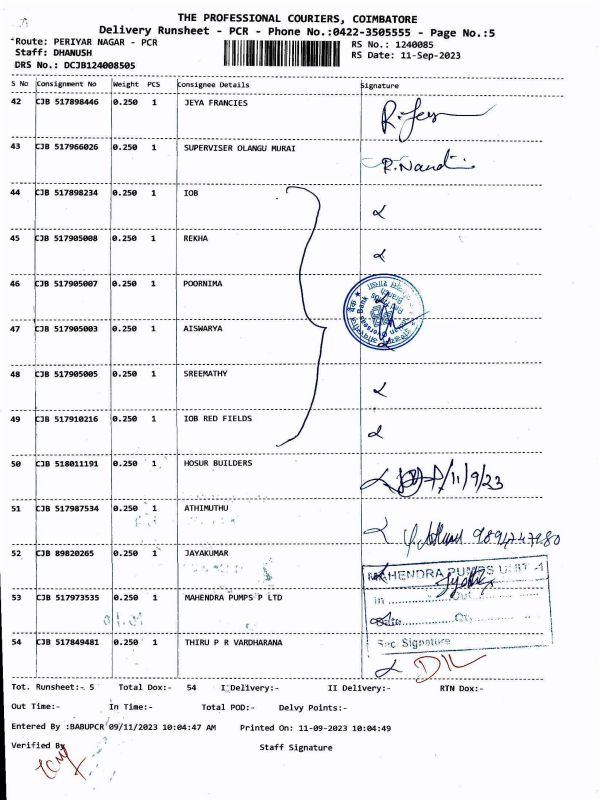 THE PROFESSIONAL COURIERS, COIMBATORE
Delivery Runsheet - PCR - Phone No.:0422-3505555 - Page No.:5
Route: PERIYAR NAGAR - PCR RS No.: 1240085
Staff: DHANUSH RS Date: 11-Sep-2023
DRS No.: DCJB124008505
S No Consignment No Weight PCS Consignee Details Signature
42 CJB 517898446 0.250 1 JEYA FRANCIES
43 CJB 517966026 0.250 1 SUPERVISER OLANGU MURAI R.Nandi
44 CJB 517898234 0.250 1 IOB
45 CJB 517905008 0.250 1 REKHA
46 CJB 517905007 0.250 1 POORNIMA
47 CJB 517905003 0.250 1 AISWARYA
48 CJB 517905005 0.250 1 SREEMATHY
49 CJB 517910216 0.250 1 IOB RED FIELDS
50 CJB 518011191 0.250 1 HOSUR BUILDERS 11/9/23
51 CJB 517987534 0.250 1 ATHIMUTHU
52 CJB 89820265 0.250 1 JAYAKUMAR
MAHENDRA PUMPS UNIT -1
53 CJB 517973535 0.250 1 MAHENDRA PUMPS P LTD
In Out
Date
Sec Signature
54 CJB 517849481 0.250 1 THIRU P R VARDHARANA
Tot. Runsheet:- 5 Total Dox:- 54 I Delivery:- II Delivery:- RTN Dox:-
Out Time:- In Time:- Total POD:- Delvy Points:-
Entered By :BABUPCR 09/11/2023 10:04:47 AM Printed On: 11-09-2023 10:04:49
Verified By Staff Signature